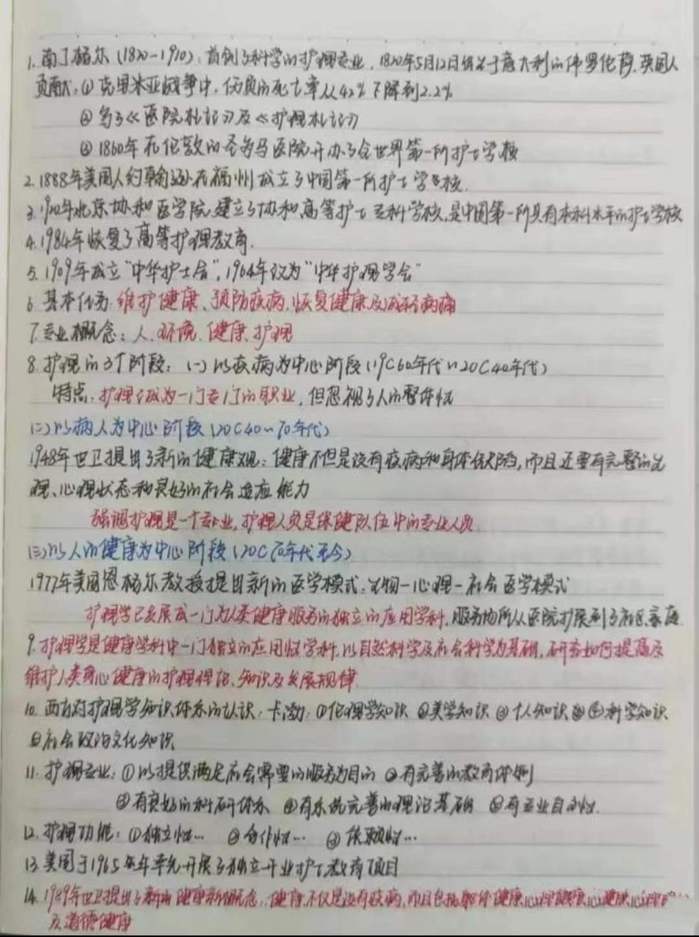 1. 南丁格尔 (1820-1910): 首创了科学的护理专业, 1820年5月12日诞生于意大利的佛罗伦萨, 英国人
贡献: ① 克里米亚战争中, 伤员的死亡率从42%下降到2.2%
② 写了《医院札记》及《护理札记》
③ 1860年在伦敦的圣多马医院开办了全世界第一所护士学校
2. 1888年美国人约翰逊在福州成立了中国第一所护士学校.
3. 1920年北京协和医学院建立了协和高等护士专科学校, 是中国第一所具有本科水平的护士学校
4. 1984年恢复了高等护理教育.
5. 1909年成立“中华护士会”, 1964年改为“中华护理学会”
6. 基本任务: 维护健康、预防疾病, 恢复健康及减轻病痛
7. 专业概念: 人, 环境, 健康, 护理
8. 护理的3个阶段: (一) 以疾病为中心阶段 (19C60年代~20C40年代)
特点: 护理已成为一门专门的职业, 但忽视了人的整体性
(二) 以病人为中心阶段 (20C40~70年代)
1948年世卫提出了新的健康观: 健康不但是没有疾病和身体缺陷, 而且还要有完整的生
理、心理状态和良好的社会适应能力
强调护理是一个专业, 护理人员是保健队伍中的专业人员.
(三) 以人的健康为中心阶段 (20C70年代至今)
1977年美国恩格尔教授提出新的医学模式: 生物-心理-社会医学模式
护理学已发展成一门为人类健康服务的独立的应用学科, 服务场所从医院扩展到了社区、家庭.
9. 护理学是健康学科中一门独立的应用性学科, 以自然科学及社会科学为基础, 研究如何提高及
维护人类身心健康的护理理论、知识及发展规律.
10. 西方对护理学知识体系的认识: 卡渤: ①伦理学知识 ②美学知识 ③个人知识 ④科学知识
⑤社会政治文化知识
11. 护理专业: ①以提供满足社会需要的服务为目的 ②有完善的教育体制
③有良好的科研体系 ④有系统完善的理论基础 ⑤有专业自主性.
12. 护理功能: ①独立性… ②合作性… ③依赖性…
13. 美国于1965年率先开展了独立开业护士教育项目
14. 1989年世卫提出了新的健康新概念: 健康不仅是没有疾病, 而且包括躯体健康, 心理健康,
及道德健康